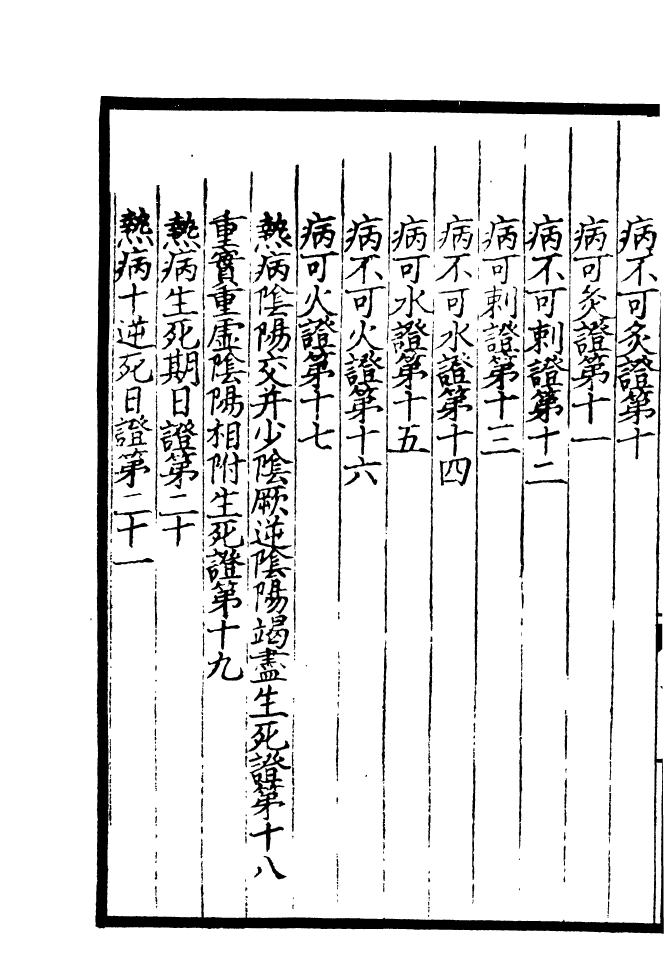 病不可灸證第十
病可灸證第十一
病不可刺證第十二
病可刺證第十三
病不可水證第十四
病可水證第十五
病不可火證第十六
病可火證第十七
熱病陰陽交并少陰厥逆陰陽竭盡生死證第十八
重實重虛陰陽相附生死證第十九
熱病生死期日證第二十
熱病十逆死日證第二十一